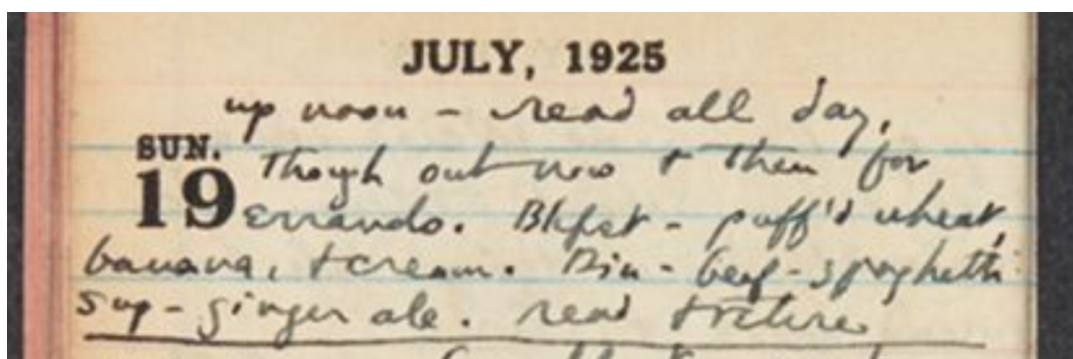 JULY, 1925
up noon - read all day,
SUN.
19
Though out now & then for
errands. Bkfst - puff'd wheat,
banana, & cream. Din - beef-spaghetti
Sup - ginger ale. read & retire